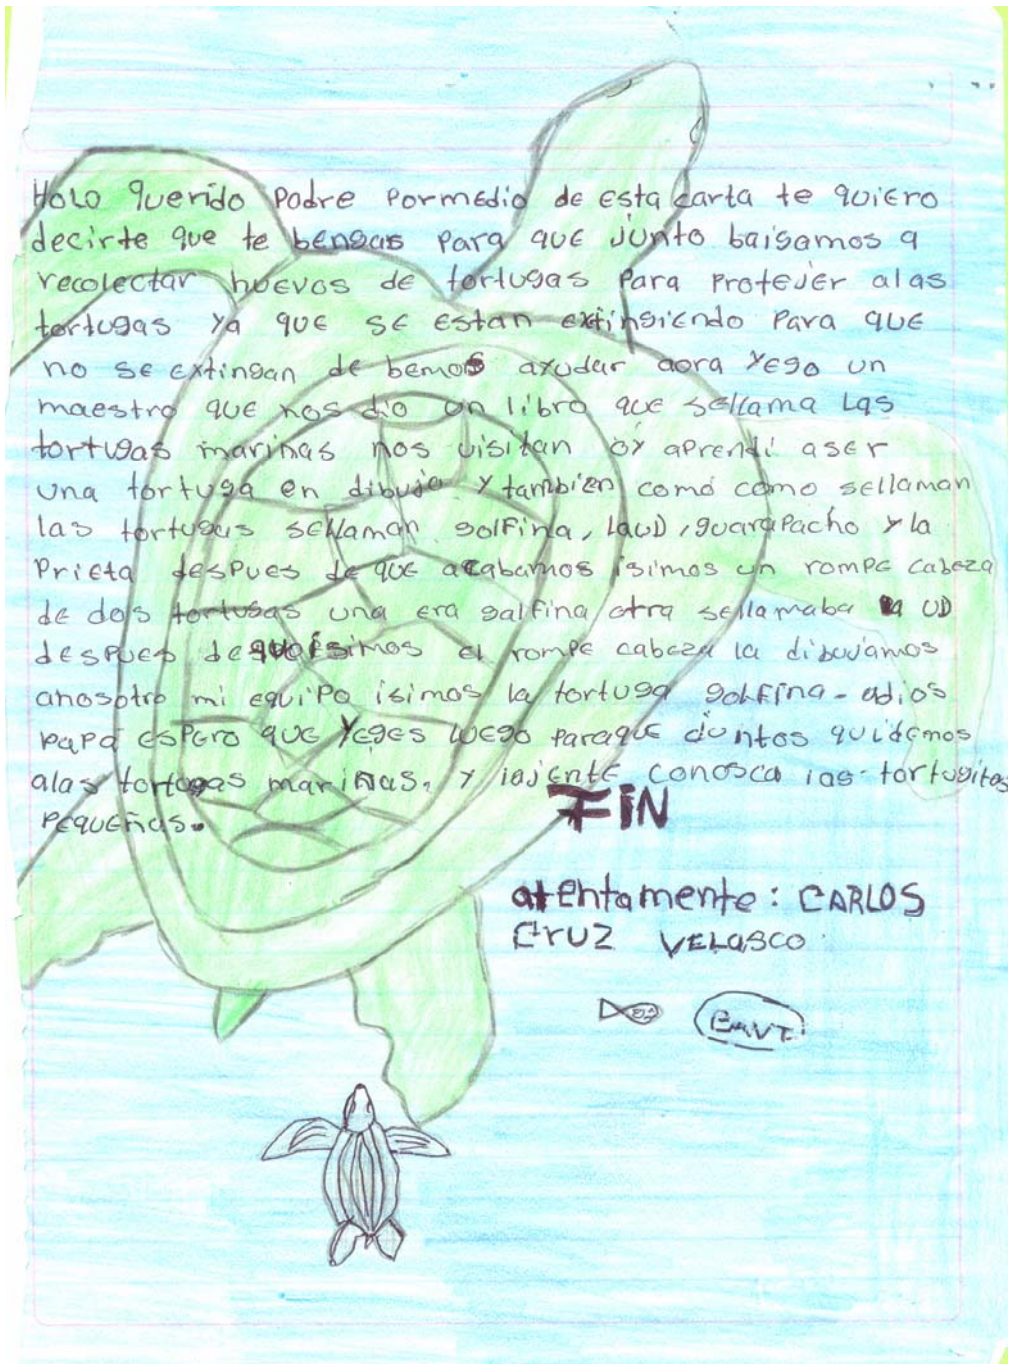 Hola querido Padre Pormedio de esta carta te quiero
decirte que te bengas Para que junto baigamos a
recolectar huevos de tortugas Para Protejer alas
tortugas ya que se estan extingiendo Para que
no se extingan de bemos ayudar aora yego un
maestro que nos dio un libro que sellama Las
tortugas marinas nos visitan oy aprendi aser
una tortuga en dibujo y tambien como como sellaman
las tortugas sellaman golfina, laUD, guarapacho y la
Prieta despues de que acabamos isimos un rompe cabeza
de dos tortugas una era galfina otra sellamaba la UD
despues de isimos el rompe cabeza la dibujamos
anosotro mi equipo isimos la tortuga golfina - adios
papa espero que yeges luego paraque juntos quidemos
alas tortugas marinas, y lajente conosca las tortugitas
pequeñas.
FIN
atentamente: CARLOS
CRUZ VELASCO